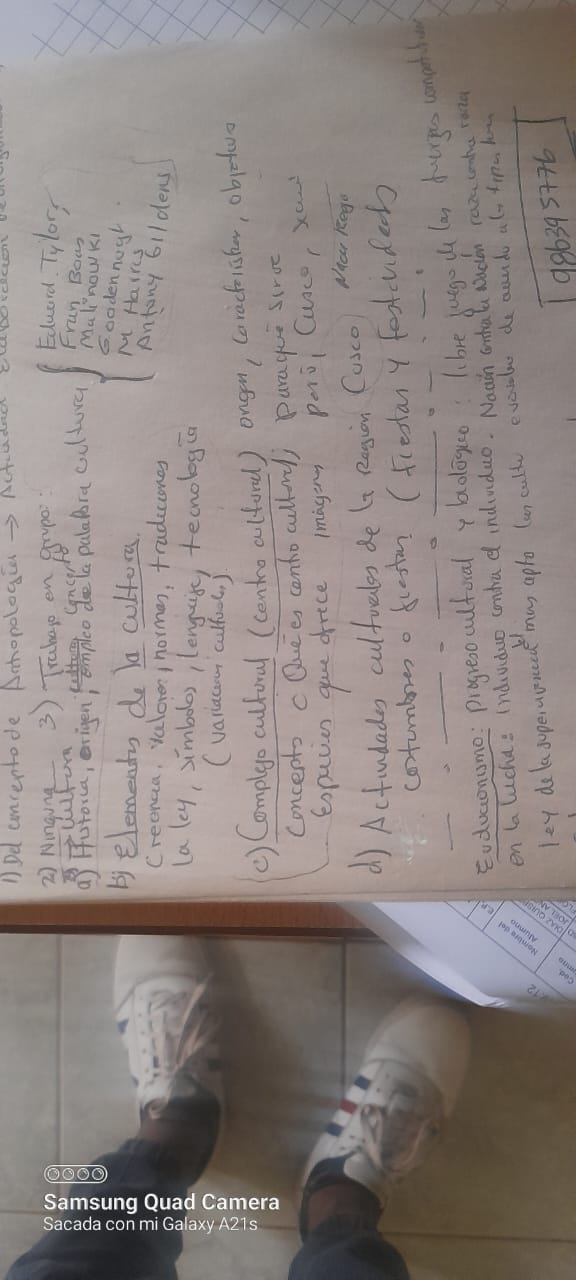 1) Del concepto de Antropología → Actividad Elaboración
2) Ninguna 3) Trabajo en Grupo:
→ Cultura
a) Historia, origen, concepto empleo de la palabra cultura { Eduard Tylor,
Fran Boas
Malinowki
Goodennugt.
M Harris
Antony Gildens
b) Elementos de la cultura.
Creencia, valores, normas, tradiciones
la ley, símbolos, lenguaje, tecnología
(Variaciones culturales)
c) Complejo cultural (centro cultural) origen, características, objetivos
Concepto c Qué es centro cultural; para que sirve
Espacios que ofrece imágenes perú, Cusco,
d) Actividades culturales de la Región Cusco
costumbres o fiestas (Fiestas y festividades
Evolucionismo: Progreso cultural y biológico: libre juego de las fuerzas competitivas
en la lucha: Individuo contra el individuo. Nación contra la nación raza contra raza
ley de la supervivencia del mas apto las cultu evolución de acuerdo a
986395776
Nombre del
Alumno
Cód.
Samsung Quad Camera
Sacada con mi Galaxy A21s